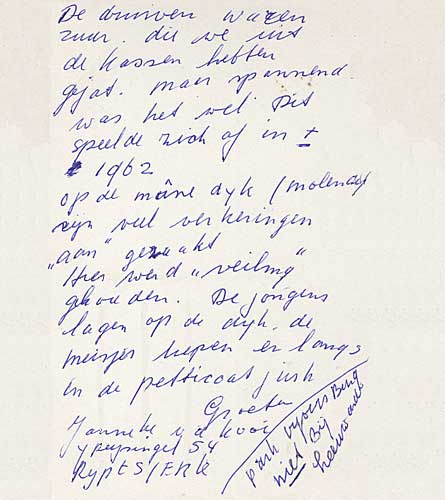 De druiven waren
zuur. die we uit
de kassen hebben
gejat. maar spannend.
was het wel. Dit
speelde zich af in ±
1962
op de mâne dyk (molendyk)
zijn veel verkeringen
"aan" gemaakt
Hier werd "veiling"
gehouden. De jongens
lagen op de dyk. de
meisjes liepen er langs
in de petticoat jurk
Groeten
Janneke v d Kooi
54
RypTSJERK
park
niet Bij
Leeuwarden